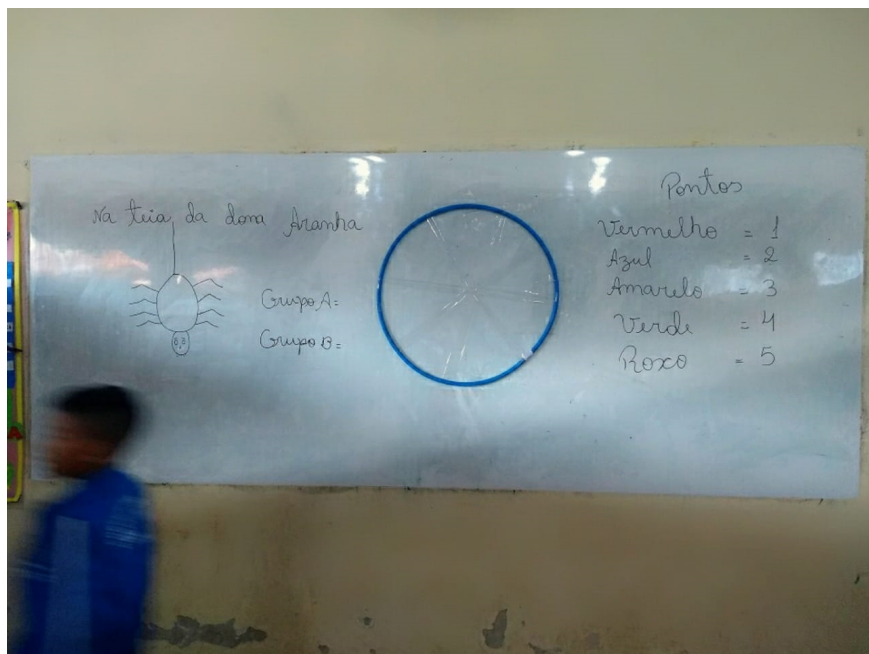 Na teia da dona Aranha
Grupo A=
Grupo B=
Pontos
Vermelho = 1
Azul = 2
Amarelo = 3
Verde = 4
Roxo = 5